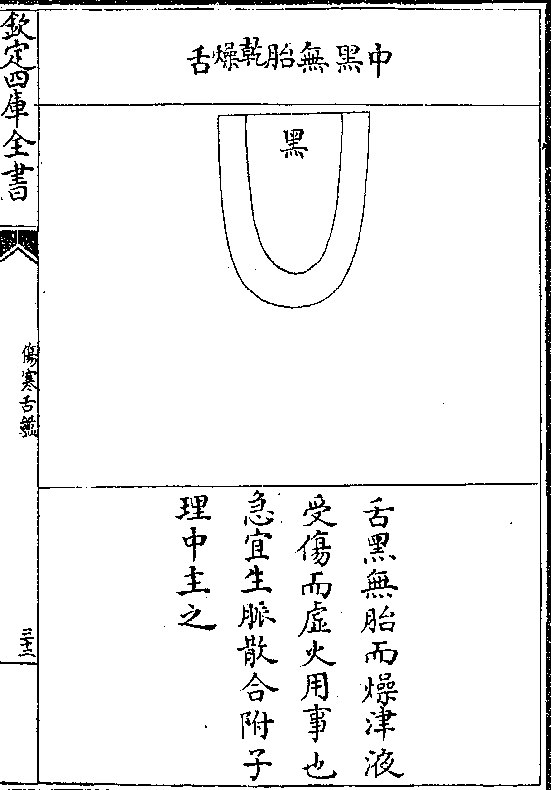 中黑無胎乾燥舌
黑
舌黑無胎而燥津液
受傷而虛火用事也
急宜生脈散合附子
理中主之
欽定四庫全書
傷寒舌鑑
三十三